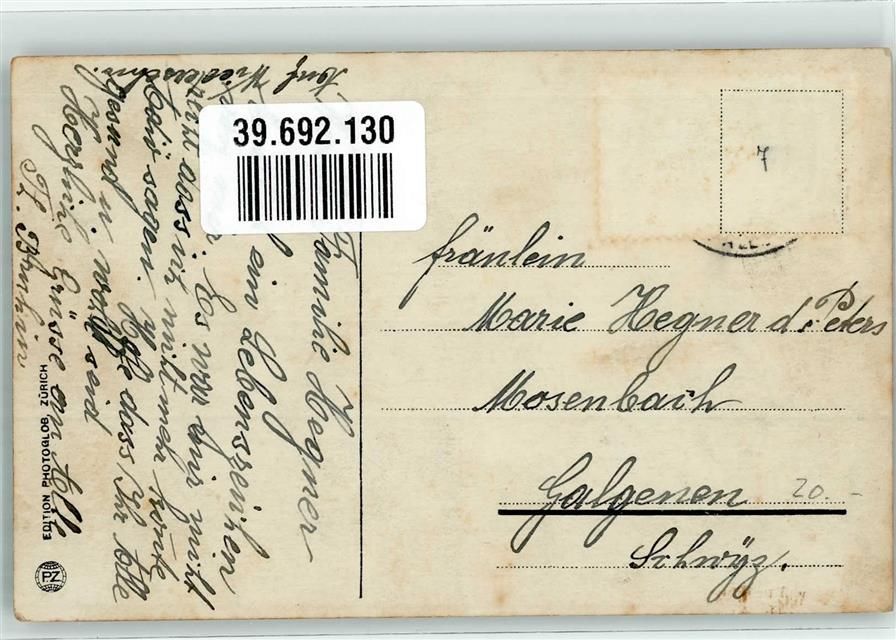 39.692.130
Familie Hegner
ein Lebenszeichen
Es war mir nicht
dass ich nicht mehr konte
sagen. Hoffe dass Ihr Alle
gesund u. wohl seid
Herzliche Grüsse an Alle
Auf Wiedersehn.
EDITION PHOTOGLOB, ZÜRICH
PZ
7
fräulein
Marie Hegner d. Peters
Mosenbach
Galgenen 20.-
Schwÿz.